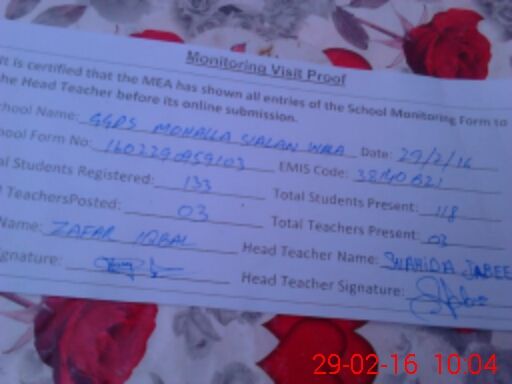 Monitoring Visit Proof
It is certified that the MEA has shown all entries of the School Monitoring Form to
the Head Teacher before its online submission.
chool Name: GGPS MOHALLA Date: 29/2/16
ool Form No: 1602290959103 EMIS Code: 38140621
al Students Registered: 133 Total Students Present: 118
TeachersPosted: 03 Total Teachers Present: 03
Name: ZAFAR IQBAL Head Teacher Name: SHAHIDA JABEE
ignature: Head Teacher Signature:
29-02-16 10:04